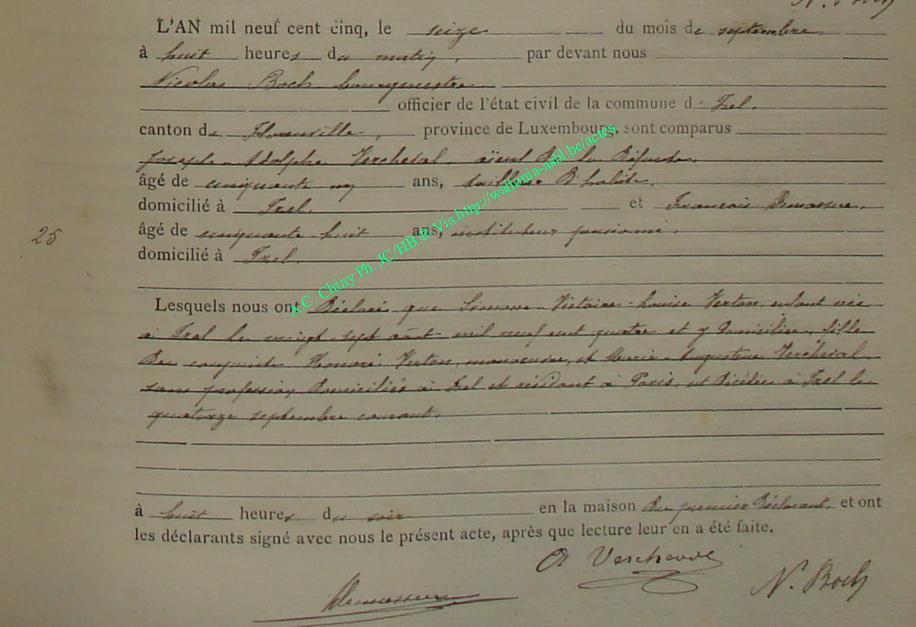 N. Boch
L'AN mil neuf cent cinq, le seize du mois de septembre
à huit heures du matin, par devant nous
Nicolas Boch bourgmestre
officier de l'état civil de la commune d' Izel.
canton de Florenville, province de Luxembourg, sont comparus
Joseph-Adolphe Vercheval, aïeul de la défunte,
âgé de cinquante ans, tailleur d'habits,
domicilié à Izel. et François Demasure,
âgé de cinquante huit ans, instituteur pensionné.
domicilié à Izel.
25
Lesquels nous ont déclaré que Simone-Victoire-Louise Verton, enfant née
à Izel le vingt-sept août mil neuf cent quatre et y domiciliée, fille
des conjoints Honoré Verton, manœuvre, et Marie-Augustine Vercheval,
sans profession, domiciliés à Izel et résidant à Paris, est décédée à Izel le
quatorze septembre courant.
à huit heures du soir en la maison du premier déclarant. et ont
les déclarants signé avec nous le présent acte, après que lecture leur en a été faite.
A Vercheval
N. Boch
A.C. Chiny Ph. JC/HB @ Via http://wallonia-asbl.be/actes